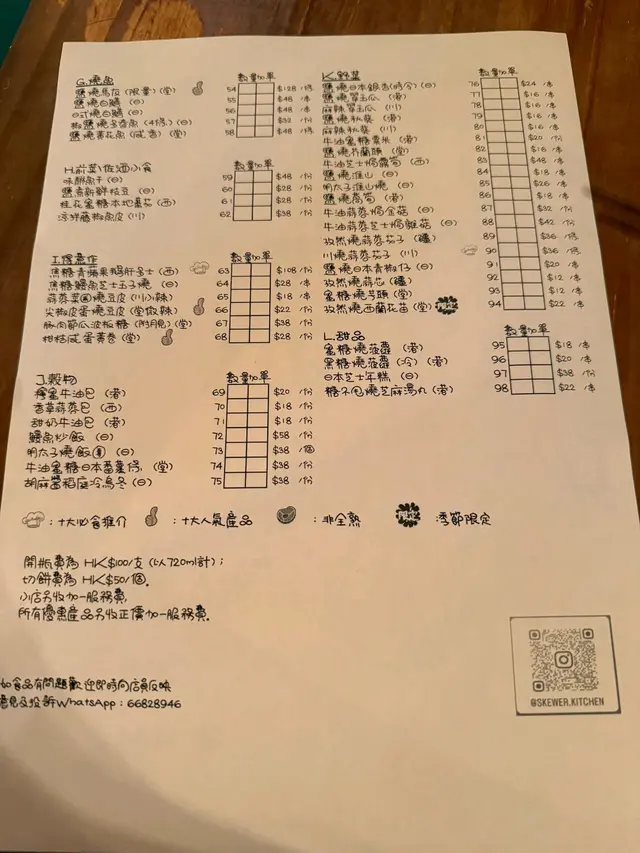 G.燒魚 數量 加單
鹽燒馬友 (限量) (堂) 54 $128 /條
鹽燒白鱔 (日) 55 $48 /串
日式燒白鱔 (日) 56 $48 /串
椒鹽燒多春魚 (4條) (日) 57 $32 /份
鹽燒黃花魚 (咸香) (堂) 58 $48 /條
H.前菜/佐酒小食 數量 加單
味醂魚干 (日) 59 $48 /份
鹽煮新鮮枝豆 (日) 60 $28 /份
桂花蜜糖本地番茄 (西) 61 $28 /份
涼拌藤椒魚皮 (川) 62 $38 /份
I.得意作 數量 加單
焦糖青蘋果鵝肝多士 (西) 63 $108 /份
焦糖鰻魚芝士玉子燒 (日) 64 $28 /串
蒜蓉菜圃燒豆皮 (川小辣) 65 $18 /串
尖椒皮蛋燒豆皮 (堂微辣) 66 $22 /份
豚肉節瓜波板糖 (附月見) (堂) 67 $38 /份
柑桔咸蛋黃卷 (堂) 68 $28 /串
J.穀物 數量 加單
檸蜜牛油包 (港) 69 $20 /份
香草蒜蓉包 (西) 70 $18 /份
甜奶牛油包 (港) 71 $18 /份
鰻魚炒飯 (日) 72 $58 /份
明太子燒飯團 (日) 73 $38 /個
牛油蜜糖日本蕃薯條 (堂) 74 $38 /份
胡麻醬稻庭冷烏冬 (日) 75 $38 /份
K.野菜 數量 加單
鹽燒日本銀杏(時令) (日) 76 $24 /串
鹽燒翠玉瓜 (港) 77 $16 /串
麻辣翠玉瓜 (川) 78 $16 /串
鹽燒秋葵 (港) 79 $16 /串
麻辣秋葵 (川) 80 $16 /串
牛油蜜糖粟米 (港) 81 $20 /份
鹽燒芥蘭頭 (堂) 82 $16 /串
牛油芝士焗露筍 (西) 83 $48 /串
鹽燒淮山 (日) 84 $18 /串
明太子淮山燒 (日) 85 $26 /串
鹽燒萵筍 (港) 86 $18 /串
牛油蒜蓉焗金菇 (日) 87 $32 /份
牛油蒜蓉芝士焗雜菇 (日) 88 $42 /份
孜然燒蒜蓉茄子 (疆) 89 $36 /條
川燒蒜蓉茄子 (川) 90 $36 /條
鹽燒日本青椒仔 (日) 91 $20 /串
孜然燒蒜芯 (疆) 92 $12 /串
蜜糖燒芋頭 (堂) 93 $12 /串
孜然燒西蘭花苗 (堂) 94 $22 /串
L.甜品 數量 加單
蜜糖燒菠蘿 (港) 95 $18 /串
黑糖燒菠蘿 (冷) (港) 96 $20 /串
日本芝士年糕 (日) 97 $38 /份
糖不甩燒芝麻湯丸 (港) 98 $22 /串
：十大必食推介 ：十大人氣產品 ：非全熟 ：季節限定
開瓶費為 HK$100/支 (以720ml計)；
切餅費為 HK$50/個。
小店另收加一服務費，
所有優惠產品另收正價加一服務費。
如食品有問題歡迎即時向店員反映
意見及投訴WhatsApp：66828946
@SKEWER.KITCHEN